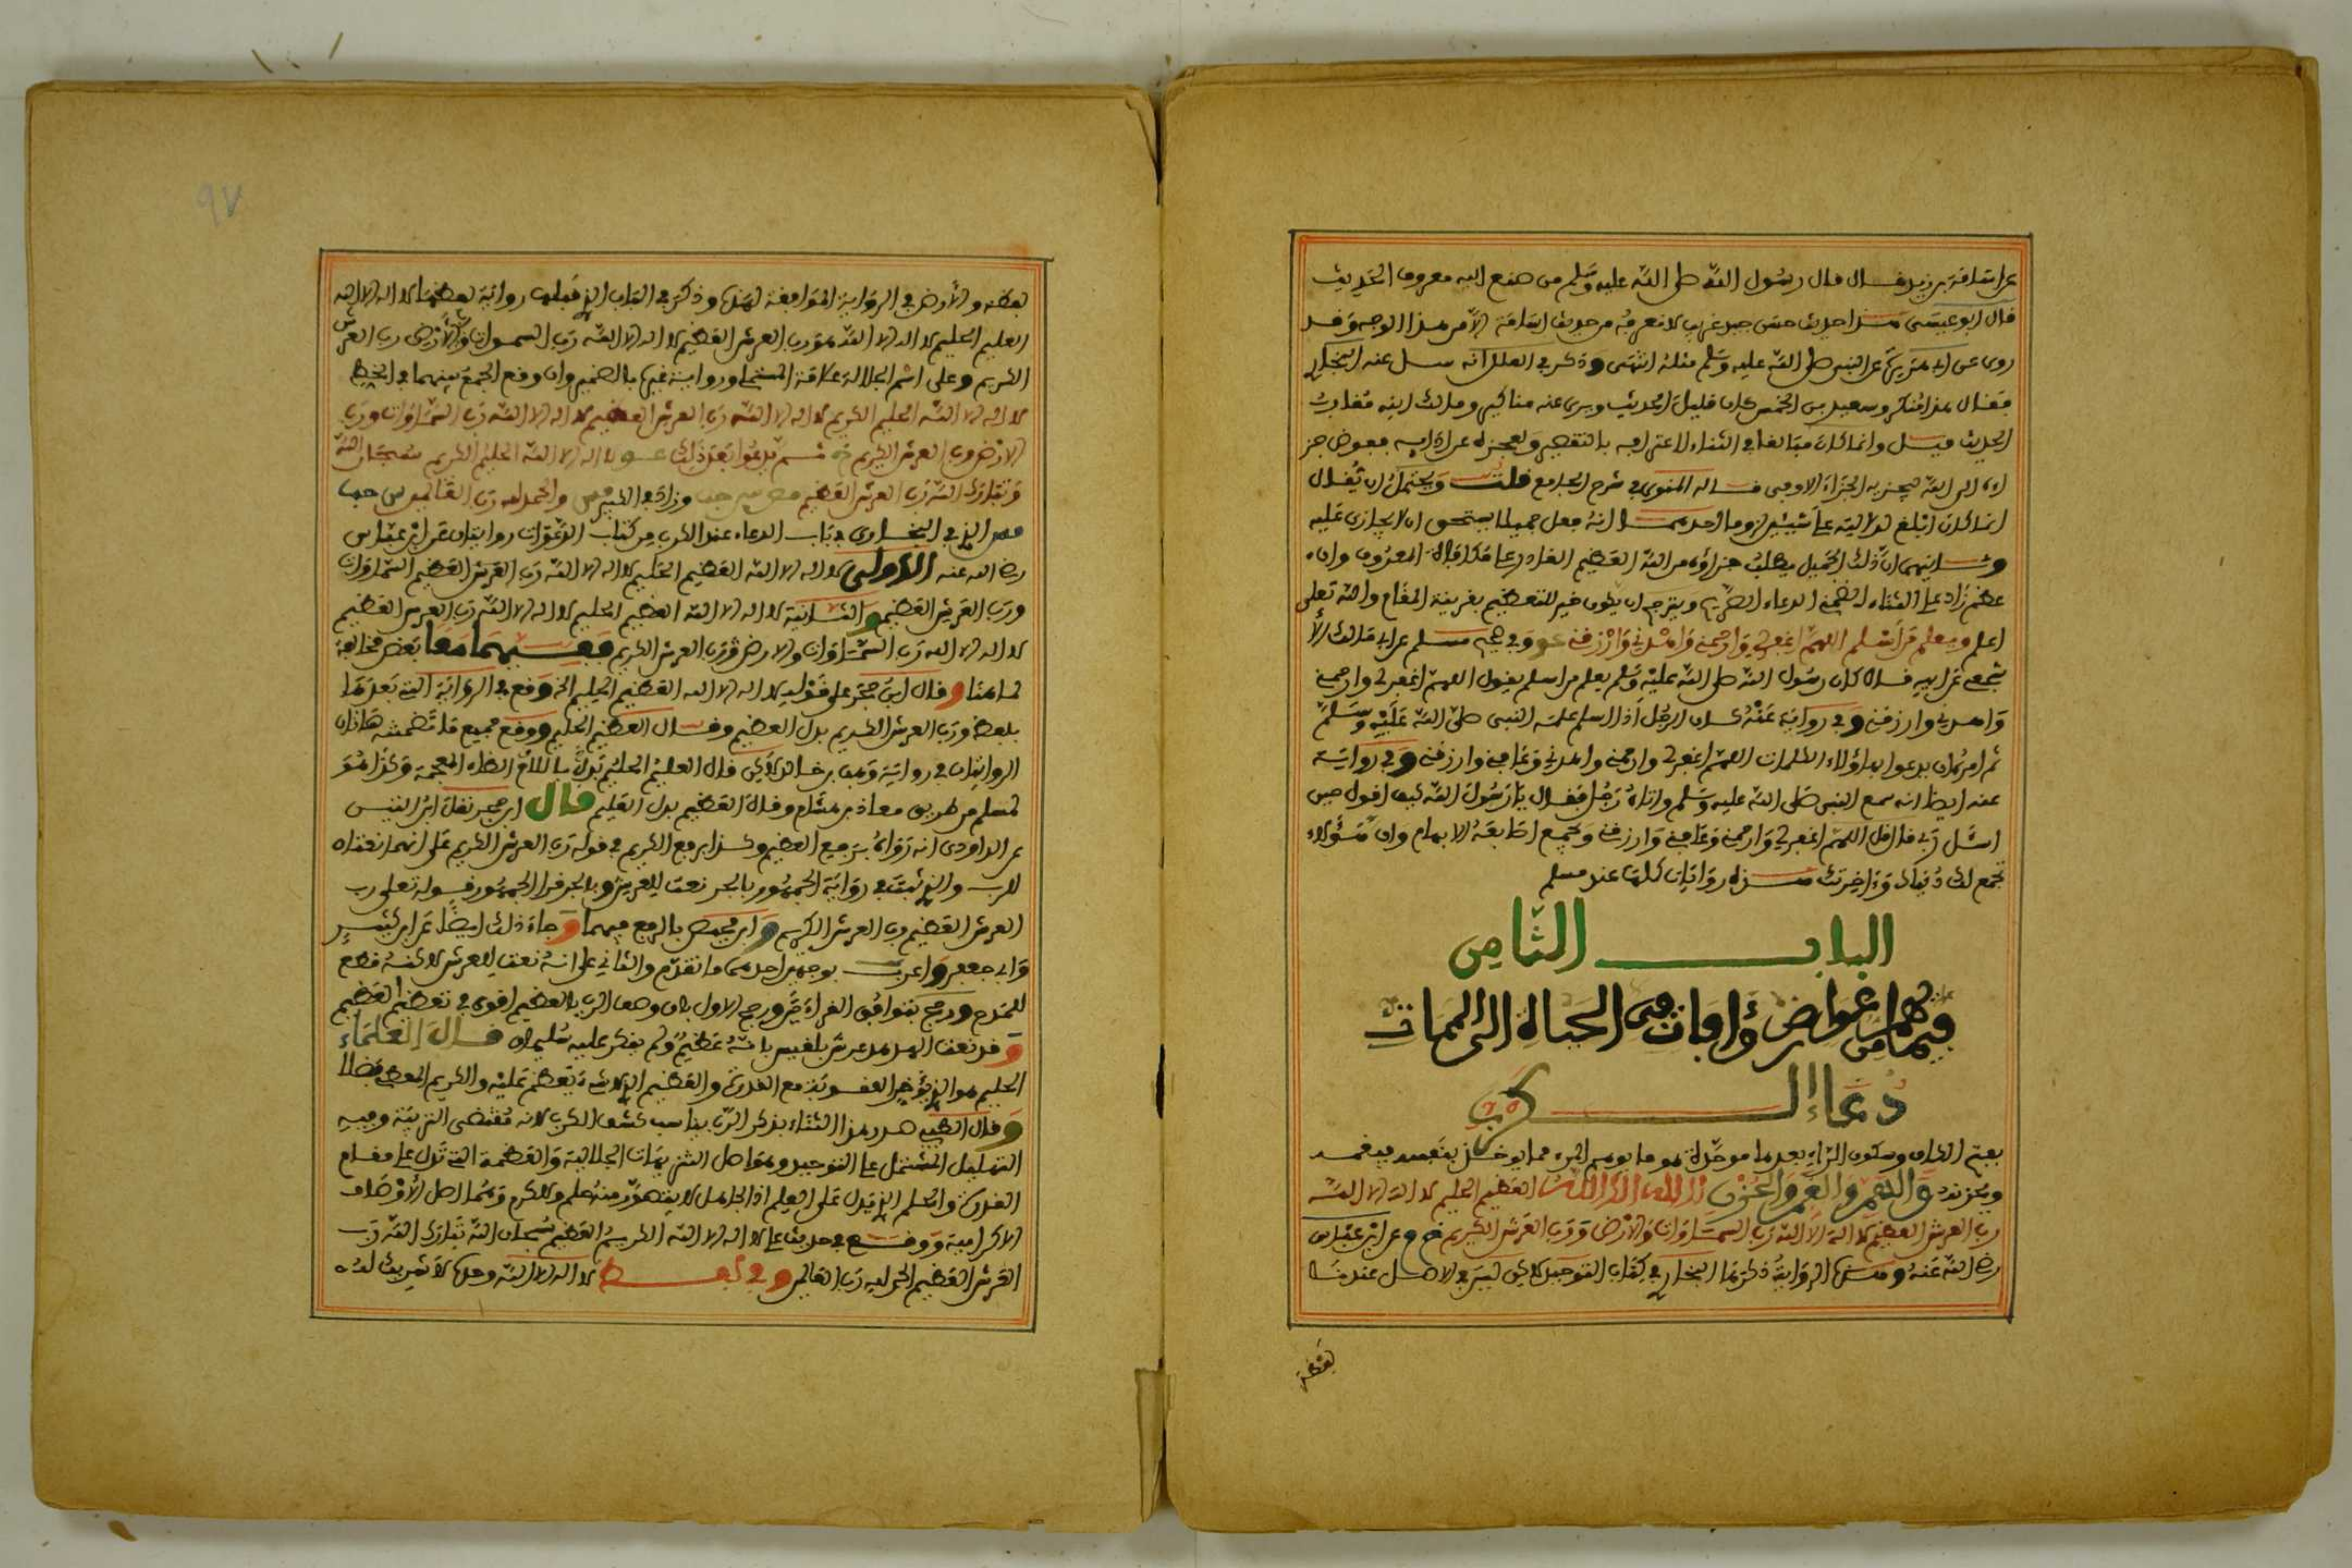 عن اسامة بن زيد قال قال رسول الله صلى الله عليه وسلم من صنع اليه معروف الحديث
قال ابو عيسى هذا حديث حسن جيد غريب لا نعرفه من حديث اسامة الا من هذا الوجه وقد
روى عن ابي هريرة عن النبي صلى الله عليه وسلم مثله انتهى وذكر في العلل انه سئل عنه البخاري
فقال هذا منكر وسعيد بن الخمس كان قليل الحديث وروى عنه مناكير ومالك ابنه مقارب
الحديث قيل وانما كان مبالغا في الثناء لاعترافه بالتقصير ولعجزه عن جزائه ففوض جز
اءه الى الله ليجزيه الجزاء الاوفى قاله المنوي في شرح الجامع قلت ويحتمل ان يقال
انما كان ابلغ لدلالته على شيئين وما احدهما انه فعل جميلا يستحق ان يجازى عليه
وثانيهما ان ذلك الجميل يطلب جزاؤه من الله العظيم القادر على مكافاة المعروف وان
عظم زاد على الثناء لتضمنه الدعاء الصريح ويترجح ان يكون خير للتعظيم بقرينة المقام والله تعلى
اعلم ويعلم من اسلم اللهم اغفر لي وارحمني واهدني وارزقني عو وفي صحيح مسلم عن ابي مالك الا
شجعي عن ابيه قال كان رسول الله صلى الله عليه وسلم يعلم من اسلم يقول اللهم اغفر لي وارحمني
واهدني وارزقني وفي رواية عنه كان الرجل اذا اسلم علمه النبي صلى الله عليه وسلم
ثم امره ان يدعو بهؤلاء الكلمات اللهم اغفر لي وارحمني واهدني وعافني وارزقني وفي رواية
عنه ايضا انه سمع النبي صلى الله عليه وسلم واتاه رجل فقال يا رسول الله كيف اقول حين
اسئل ربي قال قل اللهم اغفر لي وارحمني وعافني وارزقني ويجمع اصابعه الا الابهام فان هؤلاء
تجمع لك دنياك وءاخرتك هذه روايات كلها عند مسلم
الباب الثامن
فيما يهم من عوارض وءافات في الحياة الى الممات
دعاء الكرب
بفتح الكاف وسكون الراء بعدها موحدة هو ما يدهم المرء مما ياخذ بنفسه فيغمه
ويحزنه والهم والغم والحزن لا اله الا الله العظيم الحليم لا اله الا الله
رب العرش العظيم لا اله الا الله رب السماوات والارض ورب العرش الكريم خ م عن ابن عباس
رضي الله عنه وهذه الرواية ذكرها البخاري في كتاب التوحيد لاكن ليس في الاصل عندنا
لفظة
97
لفظة والارض في الرواية الموافقة لهذا وذكر في الباب الذي قبلها رواية لفظها لا اله الا الله
العليم الحليم لا اله الا الله هو رب العرش العظيم لا اله الا الله رب السموات والارض رب العرش
الكريم وعلى اسم الجلالة علامة المستملي ورواية غيره بالضمير وان وقع الجمع بينهما في الخط
لا اله الا الله الحليم الكريم لا اله الا الله رب العرش العظيم لا اله الا الله رب السماوات ورب
الارض ورب العرش الكريم خ ثم يدعوا بعد ذلك عو لا اله الا الله الحليم الكريم سبحان الله
وتبارك الله رب العرش العظيم مص س حب وزاد في الحصن والحمد لله رب العالمين س حب
مص الذي في البخاري في باب الدعاء عند الكرب من كتاب الدعوات روايتان عن ابن عباس
رضي الله عنه الاولى لا اله الا الله العظيم الحليم لا اله الا الله رب العرش العظيم السماوات
ورب العرش العظيم والثانية لا اله الا الله العظيم الحليم لا اله الا الله رب العرش العظيم
لا اله الا الله رب السماوات والارض ورب العرش الكريم ففيهما معا بعض مخالفة
لما هنا وقال ابن حجر على قوله لا اله الا الله العظيم الحليم الخ وقع في الرواية التي بعدها
بلفظ ورب العرش الكريم بدل العظيم وقال العظيم الحليم ووقع جميع ما تضمنته هاذان
الروايتان في رواية وهب بن خالد لاكن قال العليم الحليم بدلا باللام الظاء المعجمة وكذا هو
لمسلم من طريق معاذ بن هشام وقال العظيم بدل العليم قال ابن حجر نقل ابن التين
عن الداودي انه رواه برفع العظيم وكذا برفع الكريم في قوله رب العرش الكريم على انهما نعتان
للرب والذي ثبت في رواية الجمهور بالجر نعت للعرش وبالجر قرا الجمهور قوله تعلى رب
العرش العظيم رب العرش الكريم وابن محيصن بالرفع فيهما وجاء ذلك ايضا عن ابن كثير
وابي جعفر واعرب بوجهين احدهما ما تقدم والثاني على انه نعت للعرش لاكنه قطع
للمدح ورجح بتوافق القراءتين ورجح الاول بان وصف الرب بالعظيم اقوى في تعظيم العظيم
وقد نعت الهدهد عرش بلقيس بانه عظيم ولم ينكر عليه سليمان قال العلماء
الحليم هو الذي يؤخر العقوبة مع القدرة والعظيم الذي لا شيء يعظم عليه والكريم المعطي فضلا
وقال الطيبي صدر هذا الثناء بذكر الرب يناسب كشف الكرب لانه مقتضى التربية وفيه
التهليل المشتمل على التوحيد وهو اصل التنزيهات الجلالية والعظمة التي تدل على تمام
القدرة والحلم الذي يدل على العلم اذ الجاهل لا يتصور منه حلم ولا كرم وهما اصل الاوصاف
الاكرامية ووقع في حديث علي لا اله الا الله الكريم العظيم سبحان الله تبارك الله رب
العرش العظيم الحمد لله رب العالمين وفي لفظ لا اله الا الله وحده لا شريك له